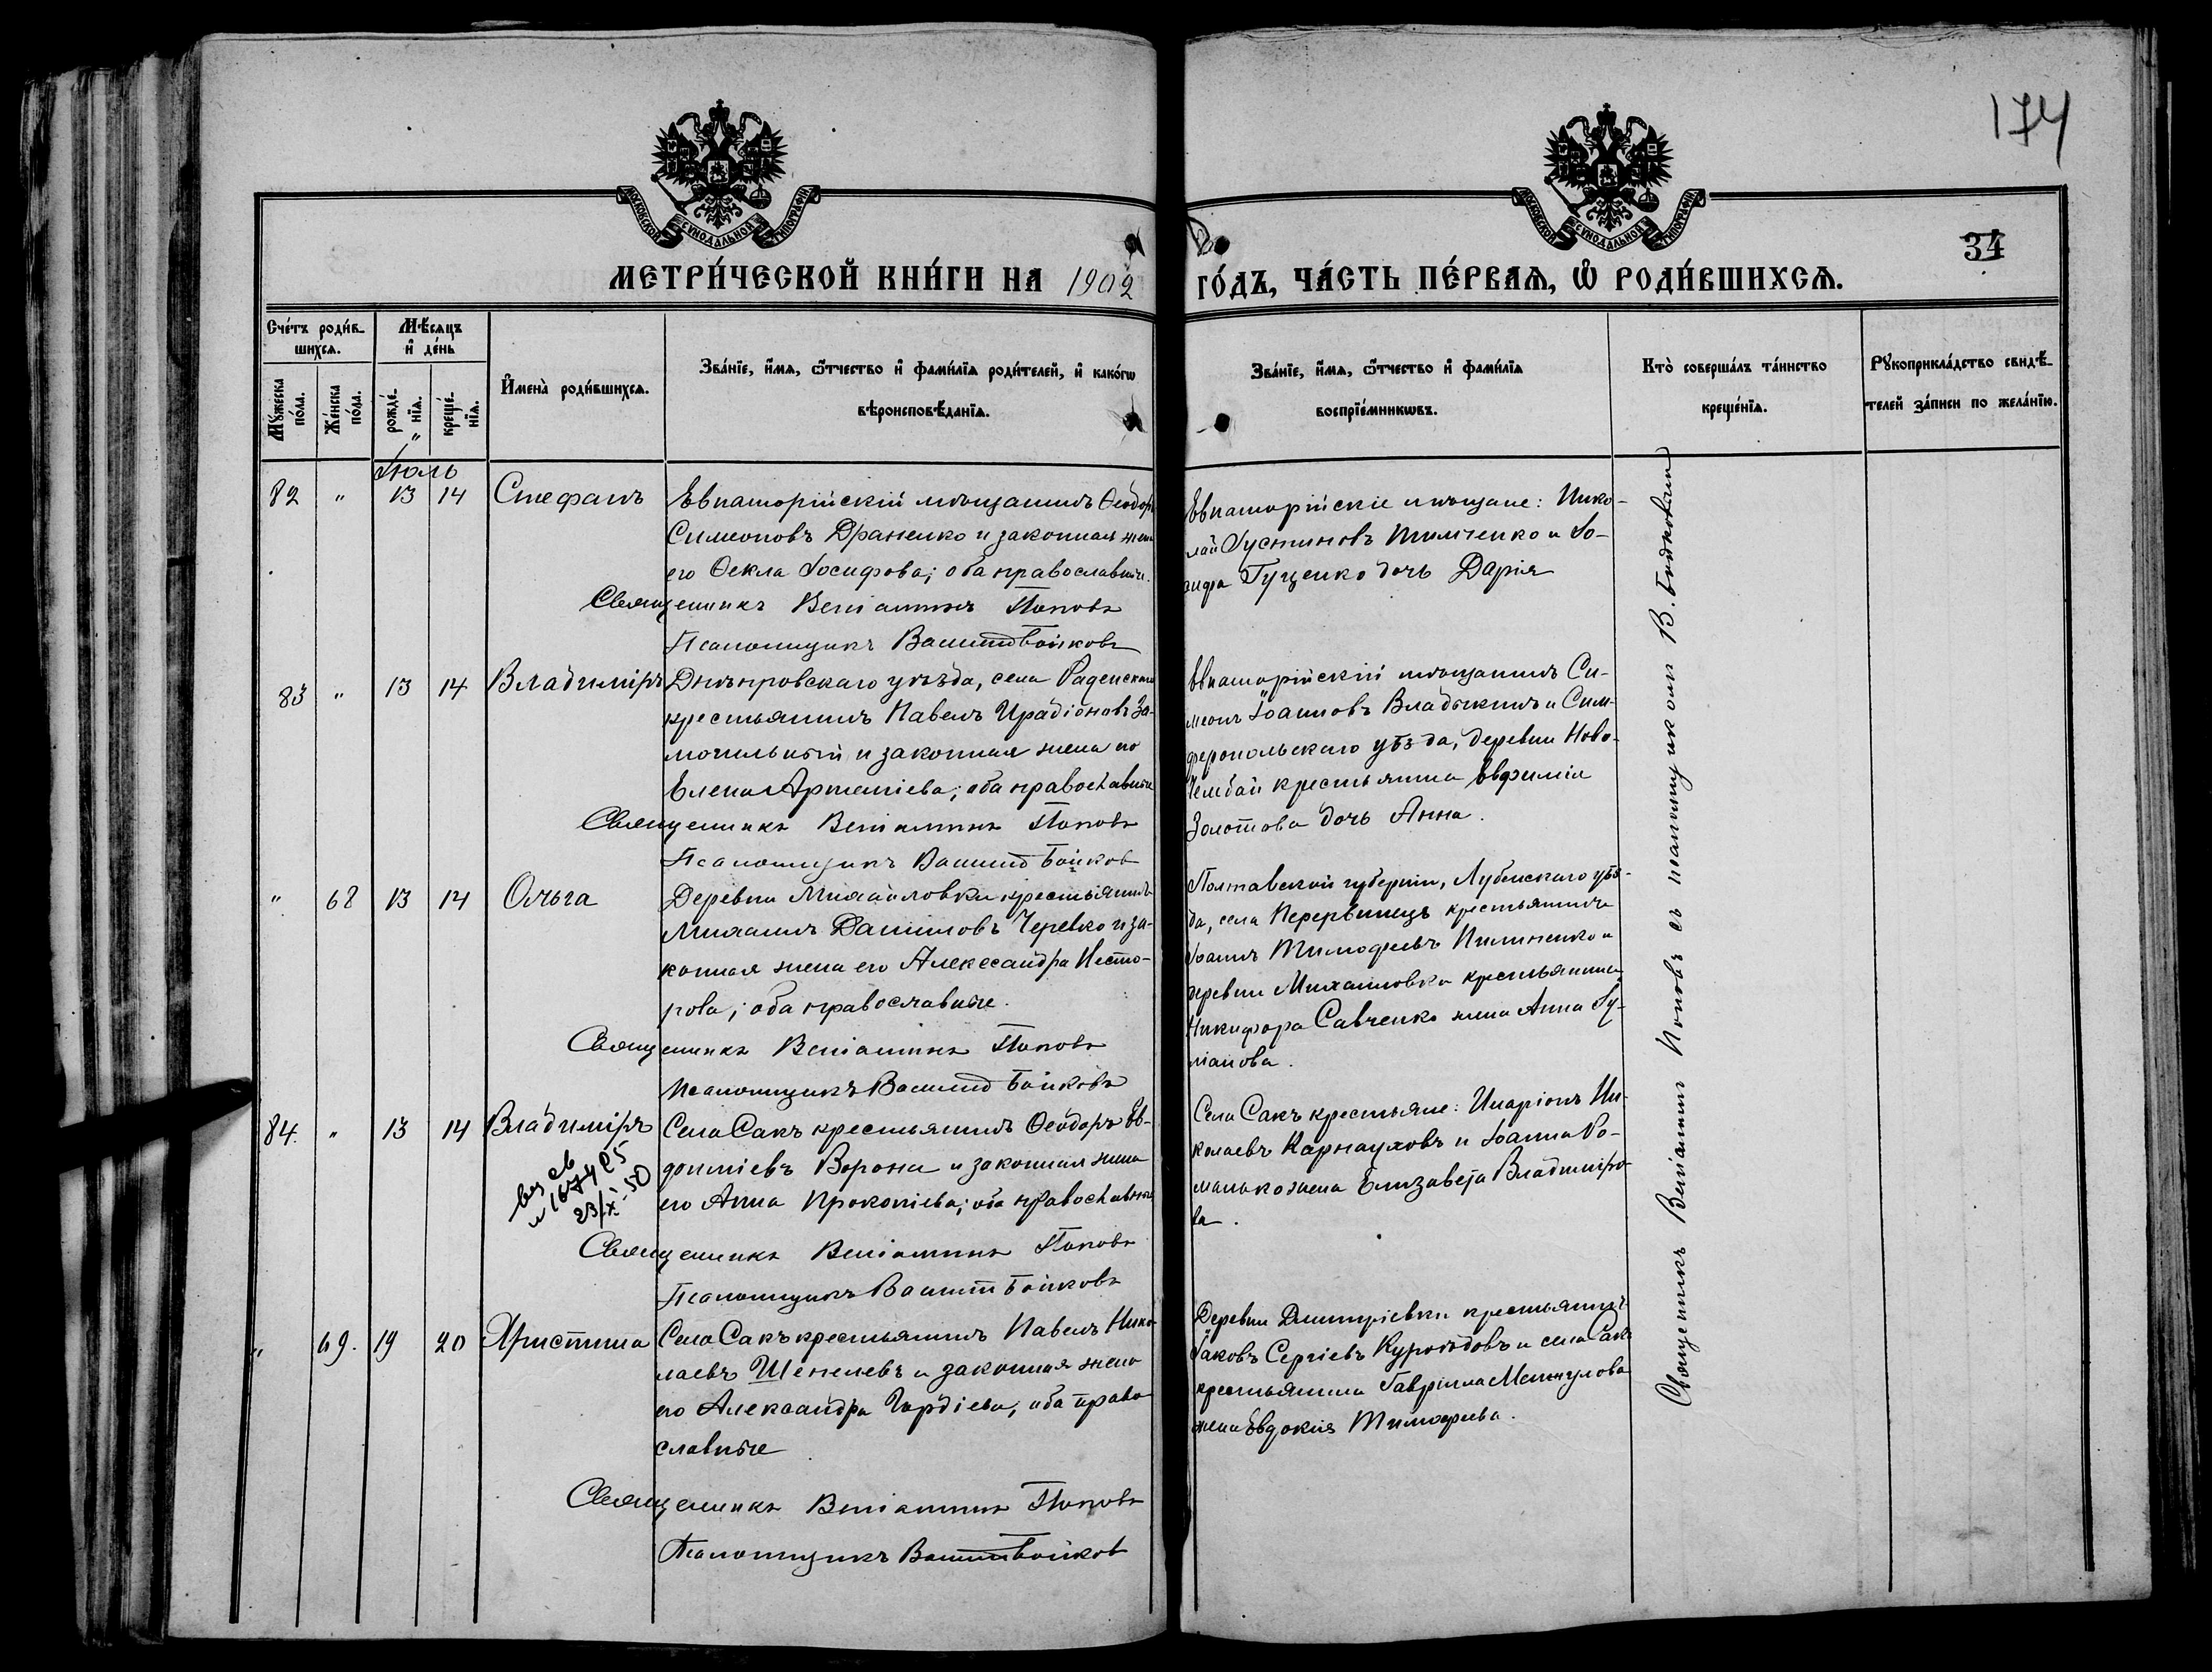 174
МОСКОВСКОЙ СУНОДАЛЬНОЙ ТИПОГРАФІИ
МОСКОВСКОЙ СУНОДАЛЬНОЙ ТИПОГРАФІИ
34
МЕТРИ́ЧЕСКОЙ КНИ́ГИ НА 1902
ГО́ДЪ, ЧА́СТЬ ПЕ́РВАѦ, Ѡ҆ РОДИ́ВШИХСѦ.
Сче́тъ роди́в-
шихсѧ.
Мѣ́сяцъ
и҆ де́нь
Мꙋ́жеска
по́ла.
Же́нска
по́ла.
рожде́-
нїѧ.
креще́-
нїѧ.
И҆мена̀ роди́вшихсѧ.
Зва́нїе, и҆́мѧ, ѻ҆́тчество и҆ фами́лїѧ роди́телей, и҆ како́гѡ
вѣроисповѣ́данїѧ.
Зва́нїе, и҆́мѧ, ѻ҆́тчество и҆ фами́лїѧ
воспрїе́мникѡвъ.
Кто̀ соверша́лъ та́инство
креще́нїѧ.
Рꙋкоприкла́дство свидѣ́-
телей за́писи по жела́нїю.
Іюль
82 " 13 14 Стефанъ
Евпаторійскій мѣщанинъ Ѳеодоръ
Симеоновъ Драненко и законная жена
его Ѳекла Іосифова; оба православные.
Священникъ Веніаминъ Поповъ
Псаломщикъ Василій Бойковъ
Евпаторійскіе мѣщане: Нико-
лай Іустиновъ Тимченко и Іо-
сифа Гуценко дочь Дарія
83 " 13 14 Владиміръ
Днѣпровскаго уѣзда, села Раденскаго
крестьянинъ Павелъ Иродіоновъ За-
могильный и законная жена его
Елена Артеміева; оба православные
Священникъ Веніаминъ Поповъ
Псаломщикъ Василій Бойковъ
Евпаторійскій мѣщанинъ Си-
меонъ Іоанновъ Владыкинъ и Сим-
феропольскаго уѣзда, деревни Ново-
Чембай крестьянина Евфимія
Золотова дочь Анна.
" 68 13 14 Ольга
Деревни Михайловки крестьянинъ
Михаилъ Даниловъ Черевко и за-
конная жена его Александра Несто-
рова; оба православные.
Священникъ Веніаминъ Поповъ
Псаломщикъ Василій Бойковъ
Полтавской губерніи, Лубенскаго уѣз-
да, села Перервинецъ крестьянинъ
Іоаннъ Тимофеевъ Пилипенко и
деревни Михаиловки крестьянина
Никифора Савченко жена Анна Іу-
ліанова.
84. " 13 14 Владиміръ
выд св
н 1674 25
23/XI 50
Села Сакъ крестьянинъ Ѳеодоръ Ев-
доkиміевъ Ворона и законная жена
его Анна Прокопіева; оба православные
Священникъ Веніаминъ Поповъ
Псаломщикъ Василій Бойковъ
Села Сакъ крестьяне: Иларіонъ Ни-
колаевъ Карнауховъ и Іоанна Ро-
манько жена Елизавета Владиміро-
ва.
" 69. 19 20 Христина
Села Сакъ крестьянинъ Павелъ Нико-
лаевъ Шепелевъ и законная жена
его Александра Гордіева; оба право-
славные
Священникъ Веніаминъ Поповъ
Псаломщикъ Василій Бойковъ
Деревни Димитріевки крестьянинъ
Іаковъ Сергіевъ Куроѣдовъ и села Сакъ
крестьянина Гавріила
жена Евдокія Тимофеева.
Священникъ Веніаминъ Поповъ съ псаломщикомъ В. Бойковымъ